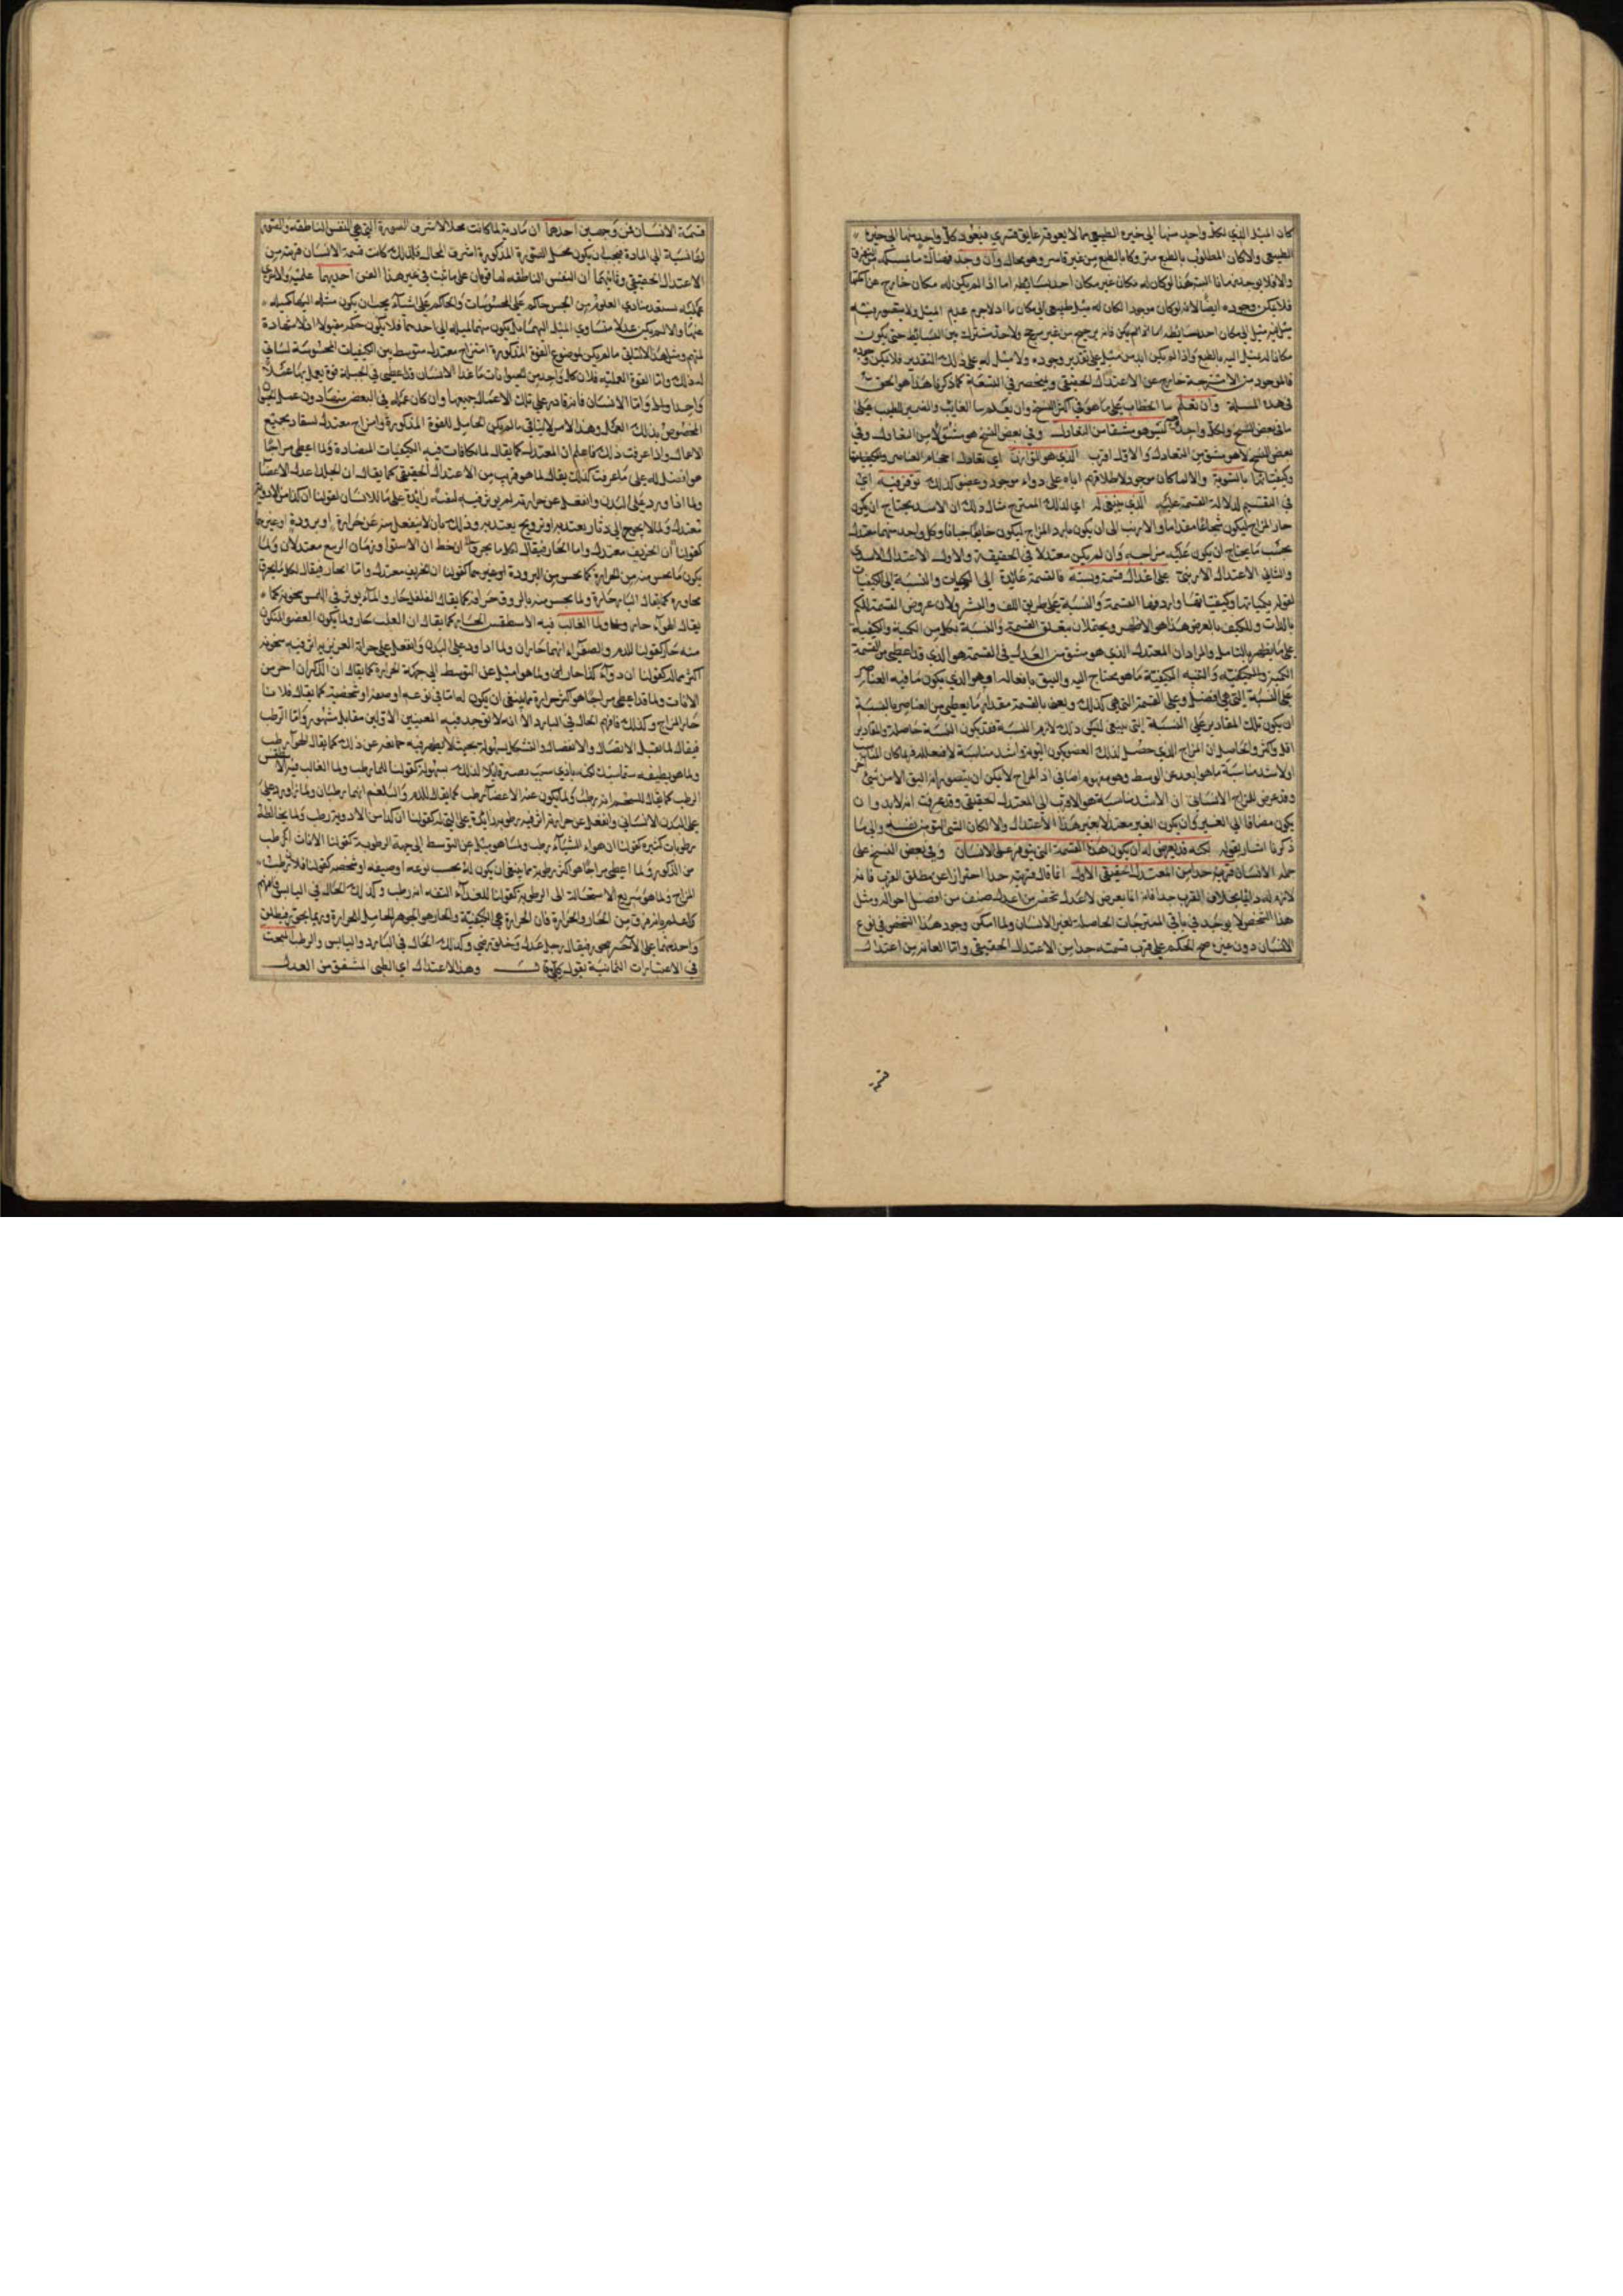 كان الميل الذي لكل واحد منهما الى حيزه الطبيعي مما لا يعوقه عايق قسري فيعود كل واحد منهما الى حيزه
الطبيعي والا كان المطلوب بالطبع متروكا بالطبع من غير قاسر وهو محال وان وجد فهناك ما
والا فلا يوجد لو كان له مكان غير مكان احد بسائطه اما اذا لم يكن له مكان خارج عن امكنتها
فلا يمكن وجوده ايضا لانه لو كان موجودا لكان له ميل طبيعي الى مكان ما اذ لا جرم عديم الميل ولا يتصور منه
ميل الى مكان احد بسائطه من غير مرجح ولا حد مشترك بين البسائط حتى يكون
مكانا له يميل اليه بالطبع واذا لم يكن له بد من ميل على تقدير وجوده ولا ميل له على ذلك التقدير فلا يمكن وجوده
فالموجود من الامتزجة خارج عن الاعتدال الحقيقي وينحصر في الثمانية كما ذكرنا هذا هو الحق
في هذه المسئلة وان تعلم بتا الخطاب على ما هو في اكثر النسخ وان يعلم بيا الغائب والضمير للطبيب على
ما في بعض النسخ ولكل واحد ليس هو مشتقا من التعادل وفي بعض النسخ هو مشتق لا من التعادل وفي
بعض النسخ لا هو مشتق من التعادل والاول اقرب الذي هو التوازن اي تعادل احجام العناصر وكيفياتها
بالسوية والا لما كان موجودا لاطلاقهم اياه على دواء موجود وعضو كذلك توفر فيه اي
في القسم لدلالة القسمة عليه الذي ينبغي له اي لذلك الممتزج مثال ذلك ان الاسد يحتاج ان يكون
حار المزاج ليكون شجاعا مقداما والارنب الى ان يكون بارد المزاج ليكون خائفا جبانا وكل واحد منهما معتدل
بحسب ما يحتاج ان يكون عليه مزاجه وان لم يكن معتدلا في الحقيقة والاول الاعتدال الاسدي
والثاني الاعتدال الارنبي على اعدل قسمة ونسبة فالقسمة عائدة الى الكميات والنسبة الى الكيفيات
لقوله بكمياتها وكيفياتها واردفها القسمة والنسبة على طريق اللف والنشر ولان عروض القسمة للكم
بالذات وللكيف بالعرض هذا هو الاظهر ويحتمل ان يتعلق القسمة والنسبة بكل من الكمية والكيفية
على ما يظهر بالتامل والمراد ان المعتدل الذي هو مشتق من العدل في القسمة هو الذي قد اعطي من القسمة
الكمية والكيفية والنسبة الكيفية ما هو يحتاج اليه واليق بافعاله او هو الذي يكون ما فيه العناصر
على النسبة التي هي افضل وعلى القسمة التي هي كذلك ونعني بالقسمة مقدار ما يعطي من العناصر وبالنسبة
ان يكون تلك المقادير على النسبة التي ينبغي لتكون ذلك لازم النسبة فقد يكون النسبة حاصلة والمقادير
اقل واكثر والحاصل ان المزاج الذي حصل لذلك العضو يكون اليق به واشد مناسبة لافعاله
او لا اشد مناسبة ما هو ابعد عن الوسط وهو مفهوم اضافي اذ المزاج لا يمكن ان يتصور انه اليق الا من شيء
وقد عرض للمزاج الانساني ان الاشد مناسبة هو الاقرب الى المعتدل الحقيقي وقد عرفت انه لا بد وان
يكون مضافا الى الغير وان يكون الغير معتدلا بغير هذا الاعتدال والا لكان الشي اليق من نفسه والى ما
ذكرنا اشار بقوله لكنه قد يعرض له ان يكون هذه القسمة التي يتوفر على الانسان وفي بعض النسخ على
جملة الانسان قريبة جدا من المعتدل الحقيقي الاول انما قال قريبة جدا احترازا عن مطلق القرب فانه
لازم له دائما بخلاف القرب جدا فانه انما يعرض لاعدل شخص من اعدل صنف من افضل احواله ومثل
هذا الشخص لا يوجد في باقي الممتزجات الحاصلة بغير الانسان ولما امكن وجود هذا الشخص في نوع
الانسان دون غيره صح الحكم على قرب قسمته جدا من الاعتدال الحقيقي واما العالم من اعتدال
قسمة
قسمة الانسان فمن وجهين احدهما ان مادته لما كانت محلا لاشرف الصورة التي هي النفس الناطقة والصورة
لها نسبة الى المادة فيجب ان يكون محل الصورة المذكورة اشرف المحال فلذلك كانت قسمة الانسان قريبة من
الاعتدال الحقيقي وثانيهما ان النفس الناطقة لها قوتان على ما ثبت في غير هذا الفن احديهما علمية والاخرى
عملية تستفيد مبادي العلوم من الحس حاكم على المحسوسات والحاكم على اشياء يجب ان يكون
عنها والا لم يكن عدلا متساوي الميل اليهما بل يكون منهما لميله الى احدهما فلا يكون حكمه مقبولا
ومثل هذا لا يتاتى ما لم يكن موضوع القوة المذكورة امتزاج معتدل متوسط بين الكيفيات المحسوسة
لذلك واما القوة العملية فلان كل واحد من الحيوانات ما عدا الانسان قد اعطي في الجبلة قوة يعمل بها عملا
واحدا واما الانسان فانه قادر على تلك الاعمال جميعها وان كان عمله في البعض دون عمل
المخصوص بذلك العمل وهذا الامر لا يتاتى ما لم يكن الحامل للقوة المذكورة وامزاج معتدل
الاعمال واذا عرفت ذلك فاعلم ان المعتدل كما يقال لما تكافات فيه الكيفيات المتضادة ولما اعطي مزاجا
هو افضل له على ما عرفت كذلك يقال لما هو قريب من الاعتدال الحقيقي كما يقال ان الجلد اعدل الاعضا
ولما اذا ورد على البدن وانفعل عن حرارته لم يوثر فيه كيفية زائدة على ما للانسان كقولنا ان كذا من الادوية
معتدل ولما لا يحوج الى دثار يعتد به او ترويح يعتد به وذلك بان لا ينفعل منه عن حرارة او برودة او غيرها
كقولنا ان الخريف معتدل واما الحار فيقال ان خط الاستوا وزمان الربيع معتدلان ولما
يكون ما يحس منه من الحرارة كما يحس من البرودة او غيرها كقولنا ان الخريف معتدل واما الحار فيقال لكل ما يحرق
مجاوره كما يقال النار حارة ولما يحس منه بالذوق حرافة كما يقال الفلفل حار والماء يوثر في اللمس سخونة كما
يقال الهواء حار ولما الغالب فيه الاسطقس الحار كما يقال ان القلب حار ولما يكون العضو المتكون
منه حار كقولنا الدم والصفراء انهما حاران ولما اذا ورد على البدن وانفعل عن حرارة الغريزية اثر فيه سخونة
اكثر مما له كقولنا ان دواء كذا حار ولما هو اميل عن التوسط الى جهة الحرارة كما يقال ان الذكران احر من
الاناث ولما قد اعطي مزاجا هو اكثر حرارة مما ينبغي ان يكون له اما في نوعه او صنفه او شخصيه كما يقال فلان
حار المزاج وكذلك فافهم الحال في البارد الا انه لا توجد فيه المعنيين الاولين مقابل مشهور واما الرطب
فيقال لما يقبل الاتصال والانفصال والتشكل بسهولة بحيث لا يظهر فيه ممانعة عن ذلك كما يقال الهواء رطب
ولما هو بطبيعه متماسك لكنه بادنى سبب يصير قابلا لذلك بسهولة كقولنا للماء رطب ولما الغالب فيه الاسطقس
الرطب كما يقال للشحم انه رطب ولما يكون عنه الاعضاء رطب كما يقال للدم والبلغم انهما رطبان ولما اذا ورد على
على البدن الانساني وانفعل عن حرارته اثر فيه رطوبة زائدة على التي له كقولنا ان كذا من الادوية رطب ولما يخالطه
رطوبات كثيرة كقولنا ان هواء الشتاء رطب ولما هو يميل عن التوسط الى جهة الرطوبة كقولنا الاناث ارطب
من الذكور ولما اعطي مزاجا هو اكثر رطوبة مما ينبغي ان يكون له بحسب نوعه او صنفه او شخصه كقولنا فلان رطب
المزاج ولما هو سريع الاستحالة الى الرطوبة كقولنا للغذاء التفه انه رطب وكذلك الحال في اليابس فافهم
كما علم بانه فرق بين الحار والحرارة فان الحرارة هي الكيفية والحار هو الجوهر الحامل للحرارة وربما يتجوز فيطلق
واحد منهما على الاخر تجوزا فيقال رجل عدل وخلق رضي وكذلك الحال في البارد واليابس والرطب المبحث
في الاعتبارات الثمانية بقوله قال وهذا الاعتدال اي الطبي المشتق من العدل